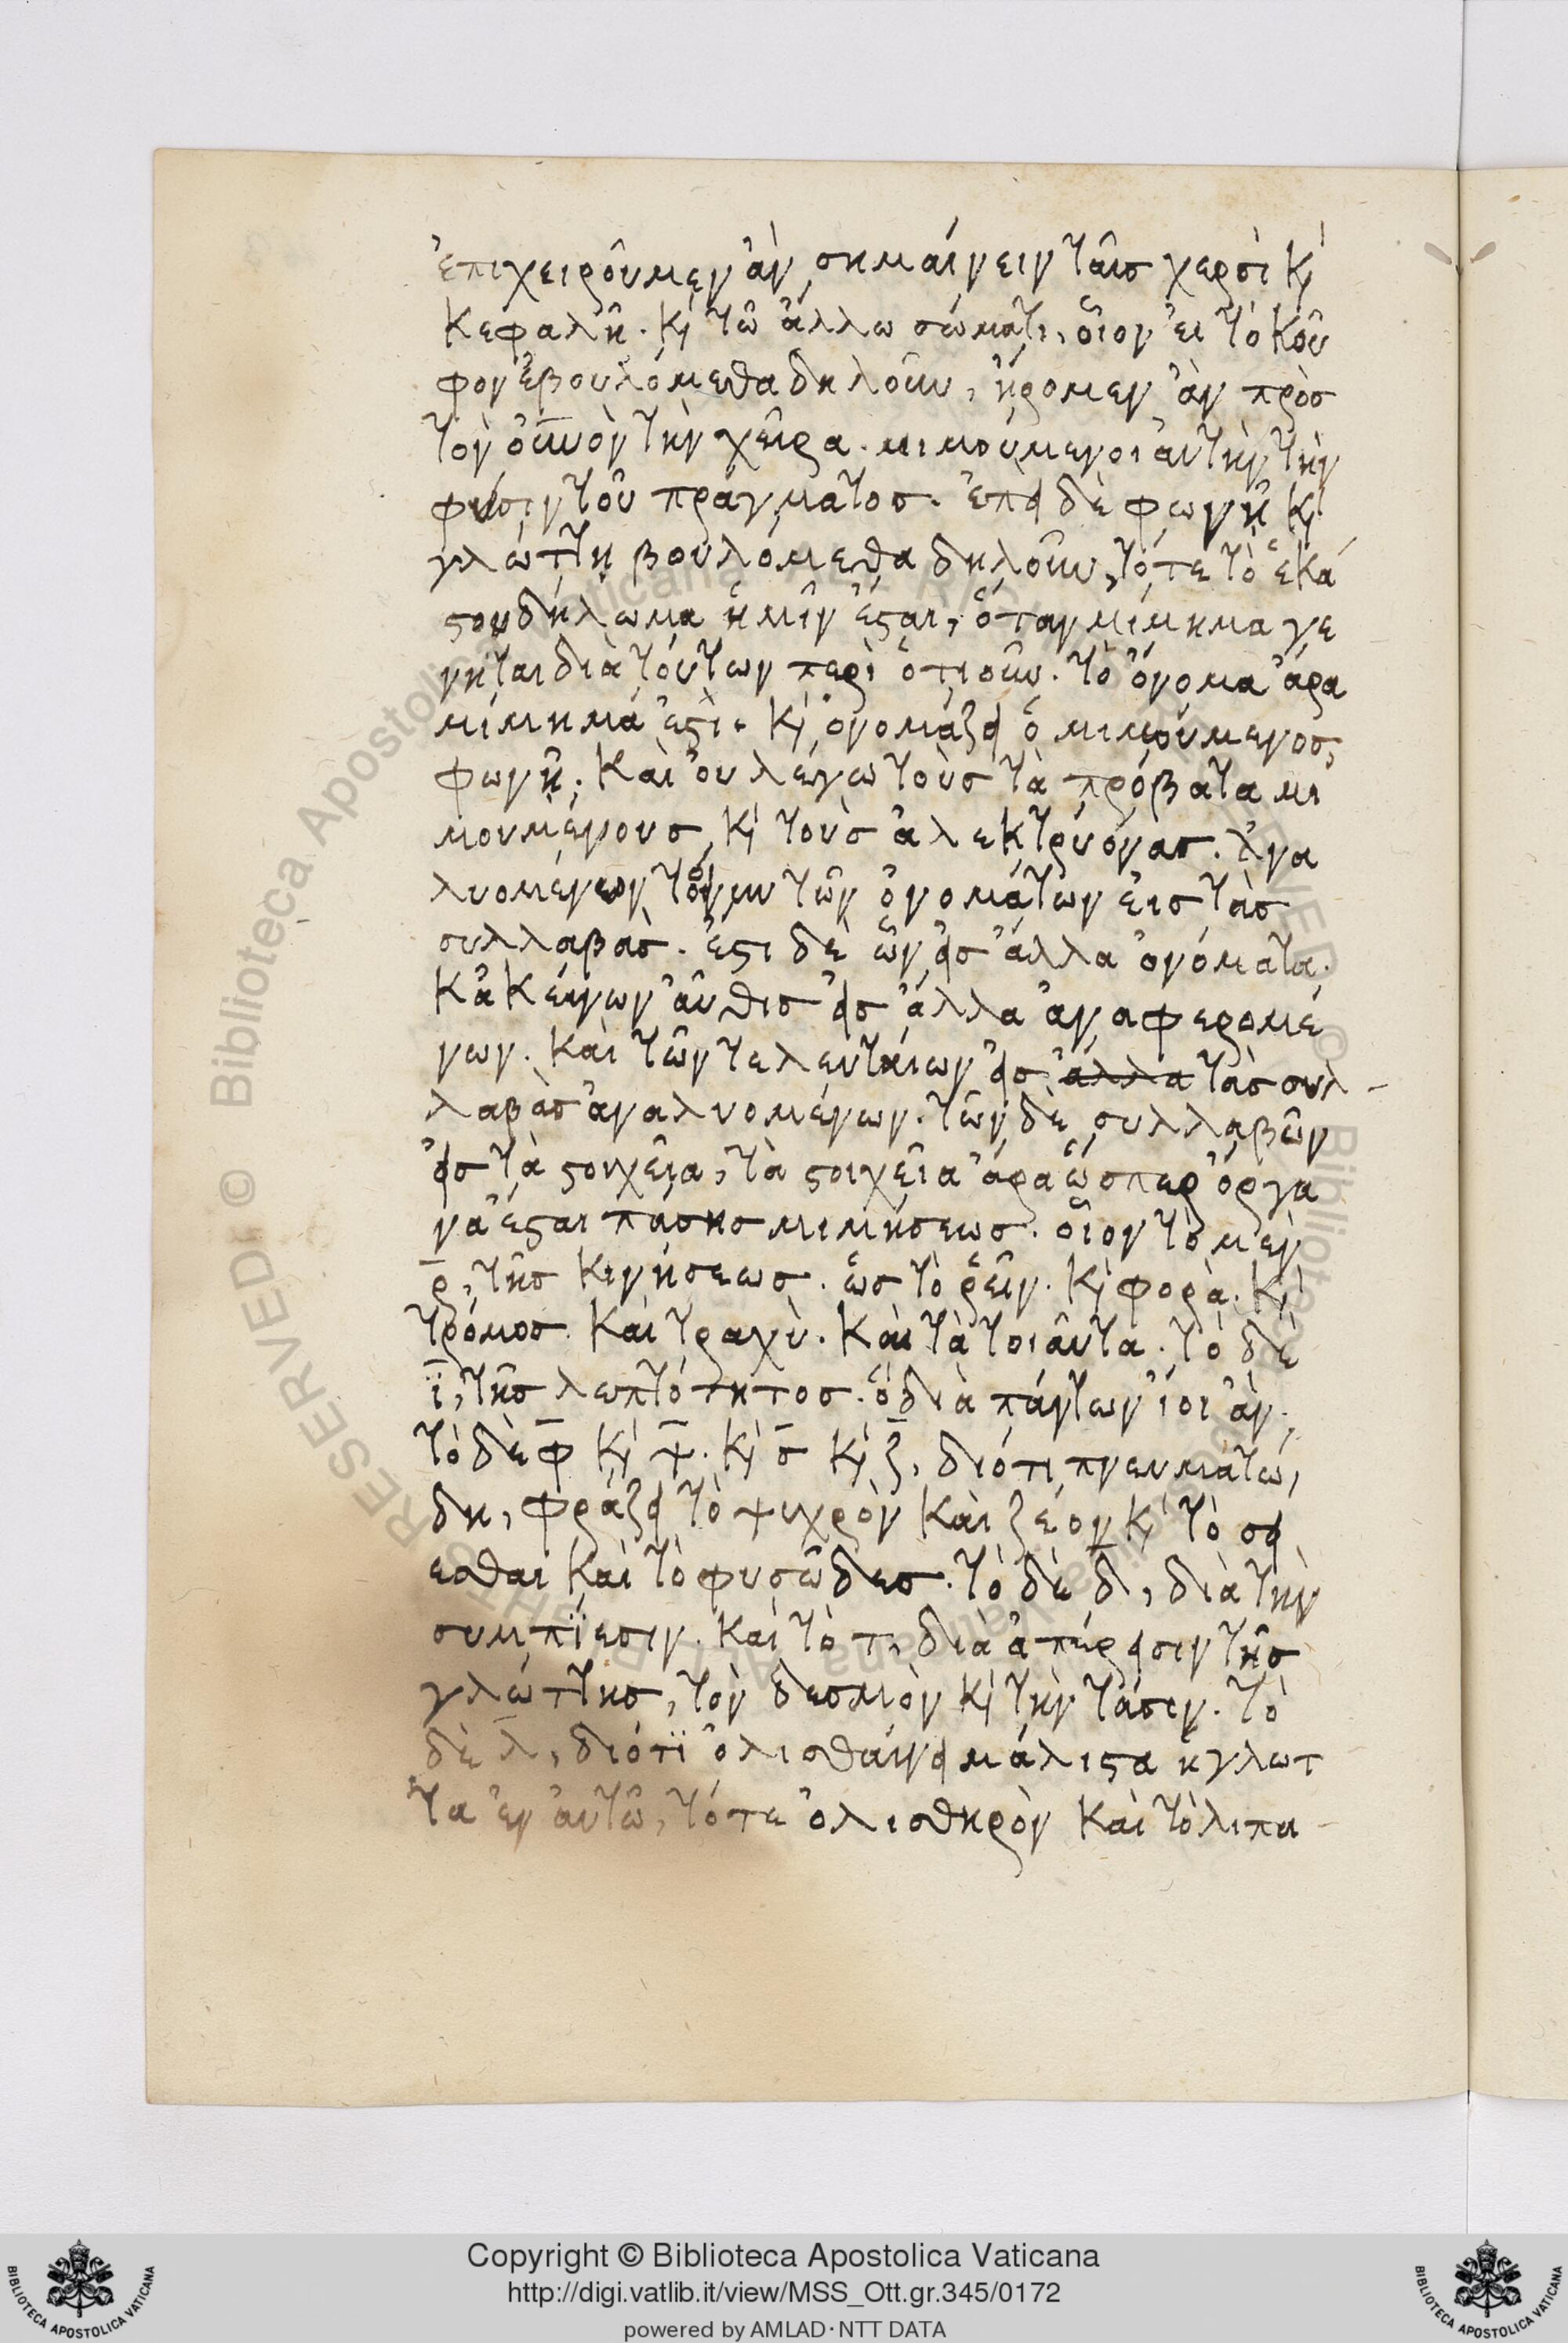 ἐπιχειροῦμεν ἀν σημαίνειν ταῖσ χερσὶ κὶ
κεφαλῆ. κὶ τῶ ἄλλω σώματι, οἷον ἐι τὸ κοῦ
φον ἐβουλόμεθα δηλοῦν, ἤρομεν ἂν πρὸσ
τὸν οὐνὸν τὴν χεῖρα. μιμούμενοι ἀυτὴν τὴν
φύσιν τοῦ πράγματοσ. ἐπεὶ δὲ φωνῆ κὶ
γλώττη βουλόμεθα δηλοῦν, τότε τὸ ἑκά
στου δήλωμα ἡμῖν ἔσται, ὅταν μίμημα γε
νηται διὰ τούτων περὶ ὁτιοῦν. τὸ ὄνομα ἄρα
μίμημά ἐστὶ. κὶ ὀνομάζει ὁ μιμούμενοσ
φωνῆ. καὶ ὀυ λέγω τοὺσ τὰ πρόβατα μι
μουμένουσ κὶ τοὺσ ἀλεκτρυόνασ. Ἀνα
λυομένων τοίνυν τῶν ὀνομάτων ἐισ τὰσ
συλλαβὰσ. ἔστι δὲ ὧν εἰσ ἄλλα ὀνόματα.
κἀκείνων ἀῦθισ εἰσ ἄλλα ἀναφερομέ
νων. καὶ τῶν τελευταίων εἰσ ἄλλα τὰσ συλ-
λαβὰσ ἀναλυομένων. τῶν δὲ συλλαβῶν
εἰσ τὰ στοιχεῖα, τὰ στοιχεῖα ἄρα ὥσπερ ὄργα
να ἔσται πάσησ μιμήσεωσ. οἷον τὸ μὲν
ρ̄, τῆσ κινήσεωσ. ὡσ τὸ ῥεῖν. κὶ φορὰ. κὶ
τρόμοσ. καὶ τραχὺ. καὶ τὰ τοιᾶυτα. τὸ δὲ
ῑ, τῆσ λεπτότητοσ. ὃ διὰ πάντων ἴοι ἂν.
τὸ δὲ φ̄ κὶ ψ̄. κὶ σ̄ κὶ ζ̄, διότι πνευματώ
δη, φράζει τὸ ψυχρὸν καὶ ζέον κὶ τὸ σεί
εσθαι καὶ τὸ φυσῶδεσ. τὸ δὲ δ, διὰ τὴν
συμπΐεσιν. καὶ τὸ τ, διὰ ἀπέρεισιν τῆσ
γλώττησ, τὸν δεσμὸν κὶ τὴν τάσιν. τὸ
δὲ λ̄, διότϊ ὀλισθαίνει μάλιστα ἡ γλωτ
τα ἐν ἀυτῶ, τότε ὀλισθηρὸν καὶ τὸ λιπα-
Copyright © Biblioteca Apostolica Vaticana
http://digi.vatlib.it/view/MSS_Ott.gr.345/0172
powered by AMLAD·NTT DATA
BIBLIOTECA APOSTOLICA VATICANA
BIBLIOTECA APOSTOLICA VATICANA